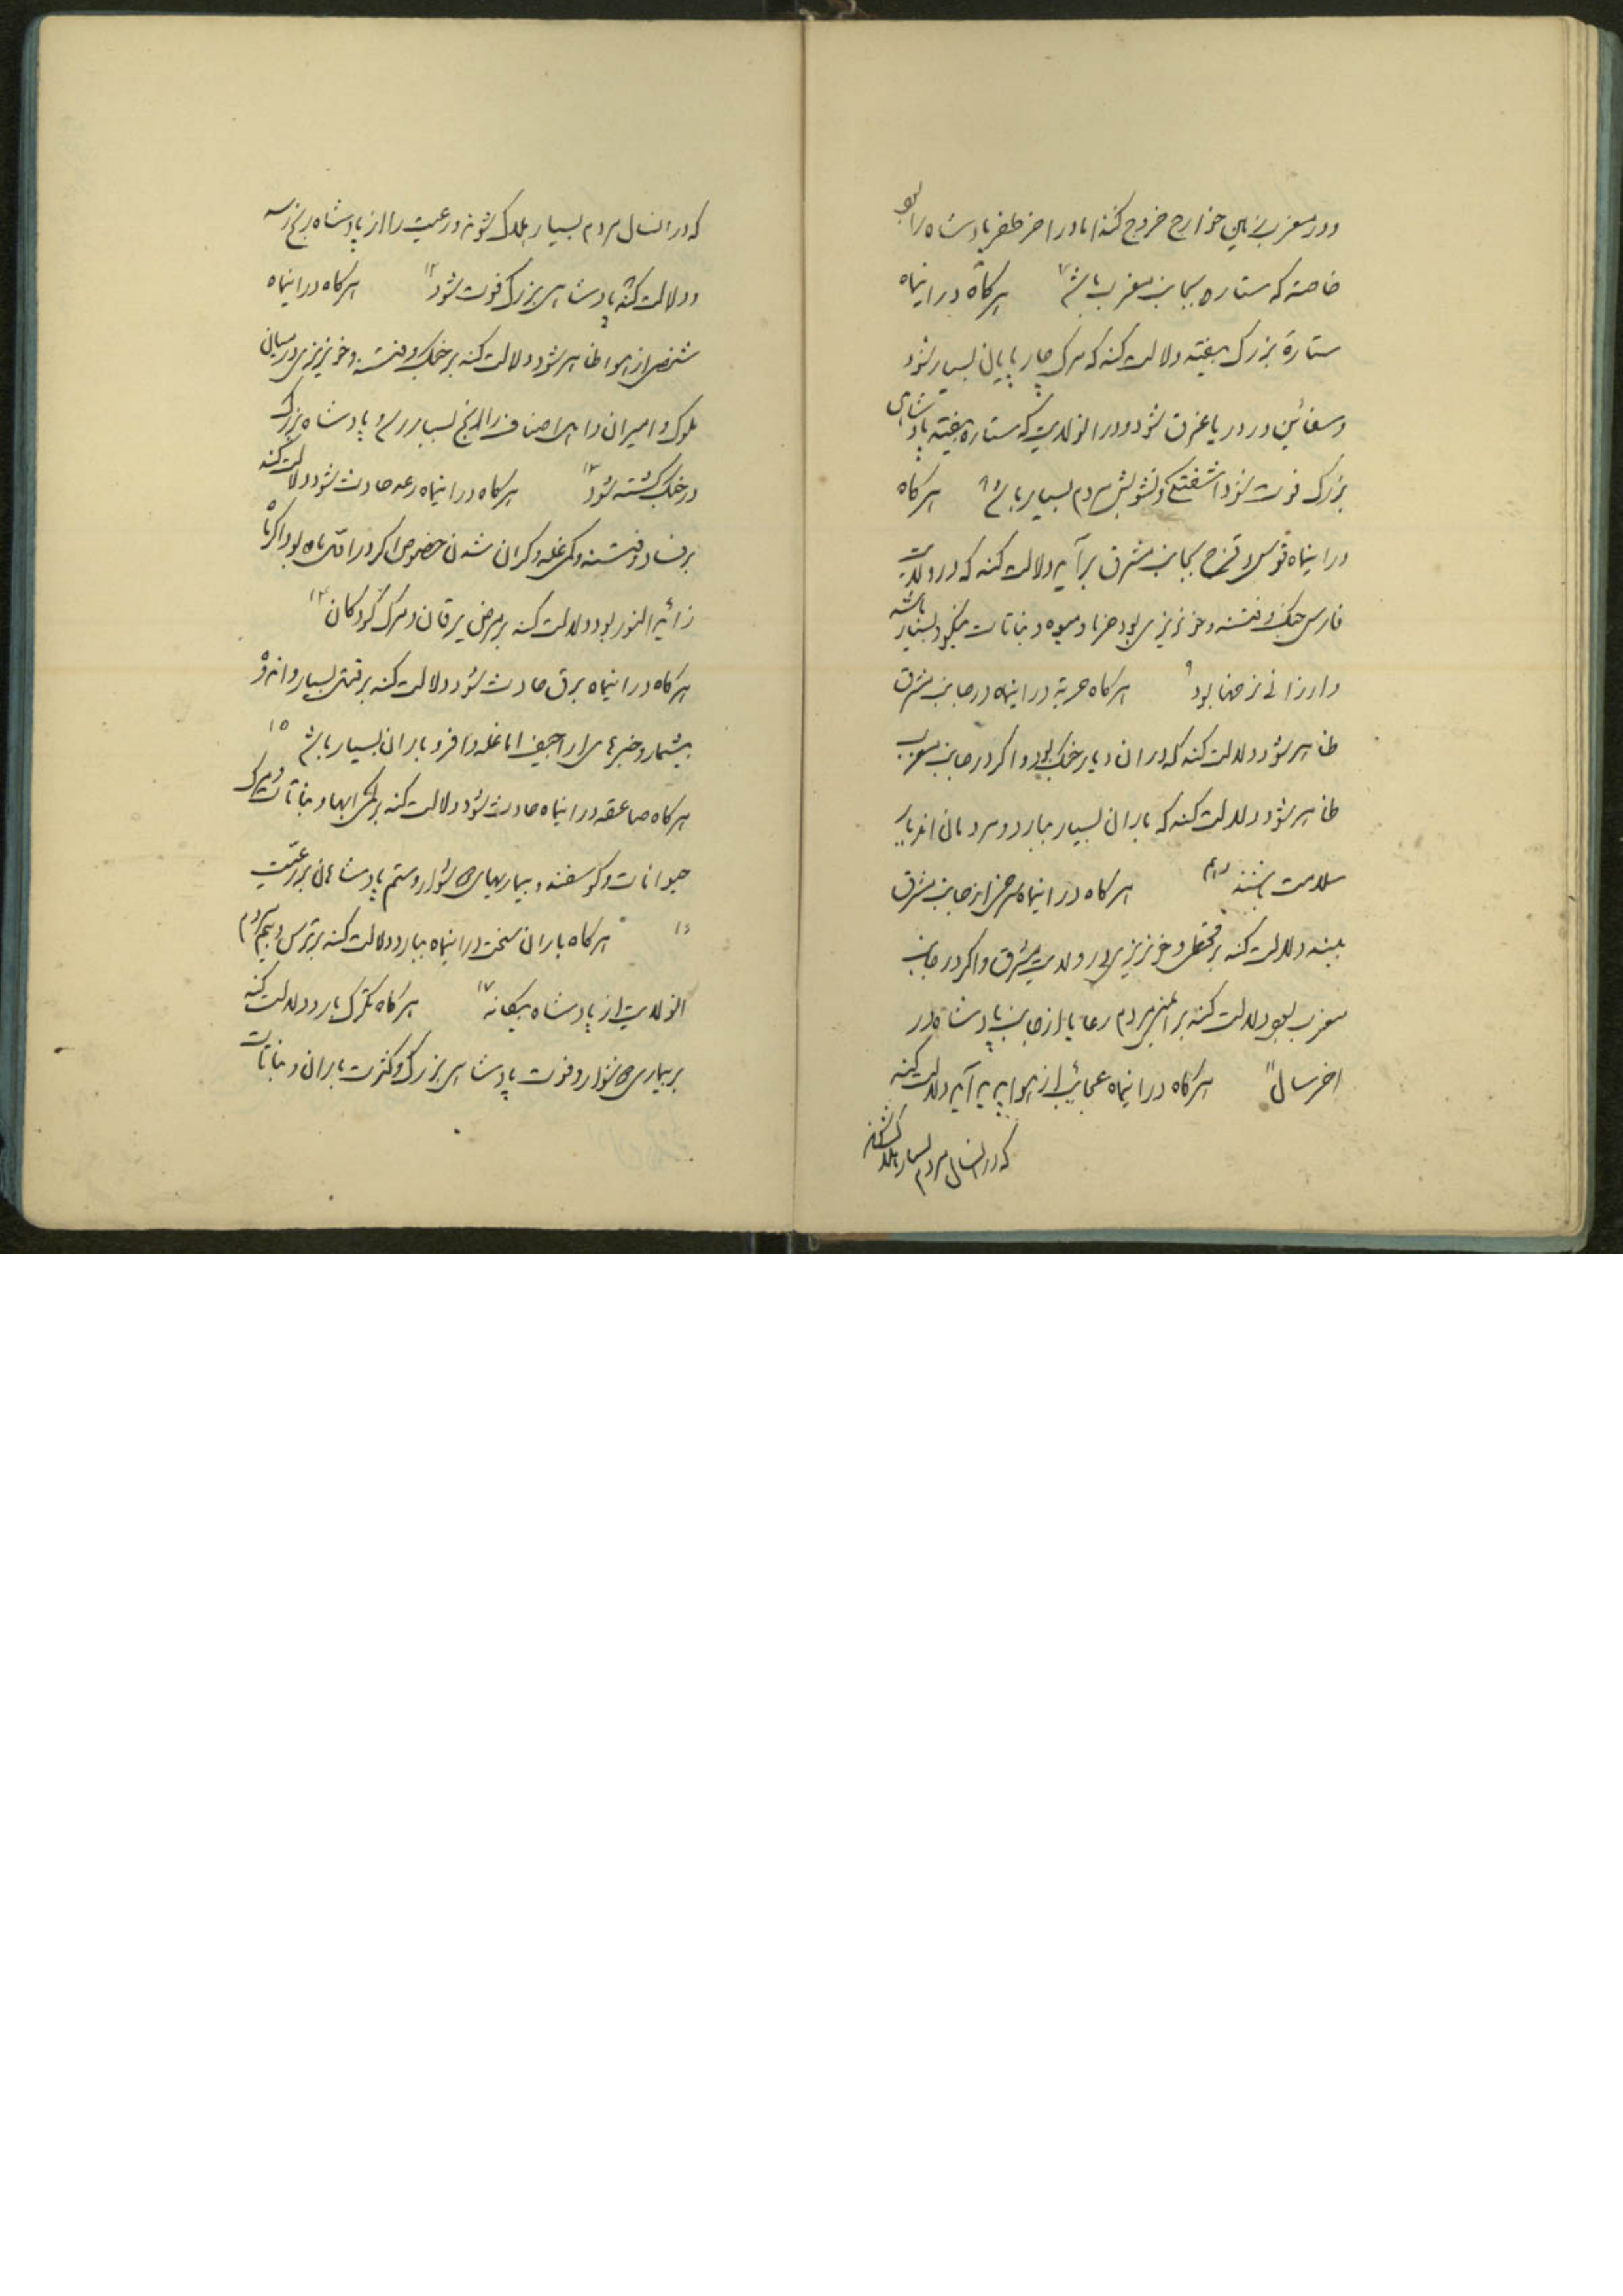 ودر مغرب زمین خوارج خروج کنند اما در اخر ظفر پادشاه را بود
خاصه که ستاره بجانب مغرب باشد ۷ هرکاه در اینماه
ستارهٔ بزرک بیفتد دلالت کند که مرک چارپایان بسیار شود
وسفائین در دریا غرق شود ودر انولایت که ستاره بیفتد پادشاهی
بزرک فوت شود اشفتکی وتشویش مردم بسیار باشد ۸ هرکاه
در اینماه قوس وقزح بجانب مشرق برآید دلالت کند که در ولایت
فارس جنک وفتنه وخونریزی بود خرما ومیوه ونباتات نیکو وبسیار باشد
وارزانی نرخها بود ۹ هرکاه حربه در اینماه در جانب مشرق
ظاهر شود دلالت کند که در ان دیار جنک بود واکر در جانب مغرب
ظاهر شود دلالت کند که باران بسیار ببارد ومردمان اندیار
سلامت باشند ۱۰ هرکاه در اینماه سرخی از جانب مشرق
بینند دلالت کند بر قحطی وخونریزی در ولایت مشرق واکر در جانب
مغرب بود دلالت کند بر مردم رعایا از جانب پادشاه در
اخر سال ۱۱ هرکاه در اینماه عجائب از هوا پدید آید دلالت کند
که در انسال مردم بسیار هلاک شوند
که در انسال مردم بسیار هلاک شوند ورعیت را از پادشاه رنج رسد
ودلالت کند پادشاهی بزرک فوت شود ۱۲ هرکاه در اینماه
شخصی از هوا ظاهر شود دلالت کند بر جنک وفتنه وخونریزی در میان
ملوک وامیران واهل اصناف را رنج بسیار رسد وپادشاه بزرک
در جنک کشته شود ۱۳ هرکاه در اینماه رعد حادث شود دلالت کند
بر فساد وفتنه وکمی غله وکران شدن خصوص اکر در اول ماه بود اکر ماه
زائد النور بود دلالت کند بر مرض یرقان ومرک کودکان ۱۴
هرکاه در اینماه برق حادث شود دلالت کند بر فتنهٔ بسیار واندوه
بیشمار وخبرهای اراجیف اما غله وافر وباران بسیار باشد ۱۵
هرکاه صاعقه در اینماه حادث شود دلالت کند بر کمی ابها ونباتات ومرک
حیوانات وکوسفند وبیماریهای دشوار وستم پادشاهان بر رعیت
۱۶ هرکاه باران سخت در اینماه ببارد دلالت کند بر ترس وبیم مردم
انولایت از پادشاه بیکانه ۱۷ هرکاه تکرک بارد دلالت کند
بر بیماری دشوار وفوت پادشاهی بزرک وکثرت باران ونباتات